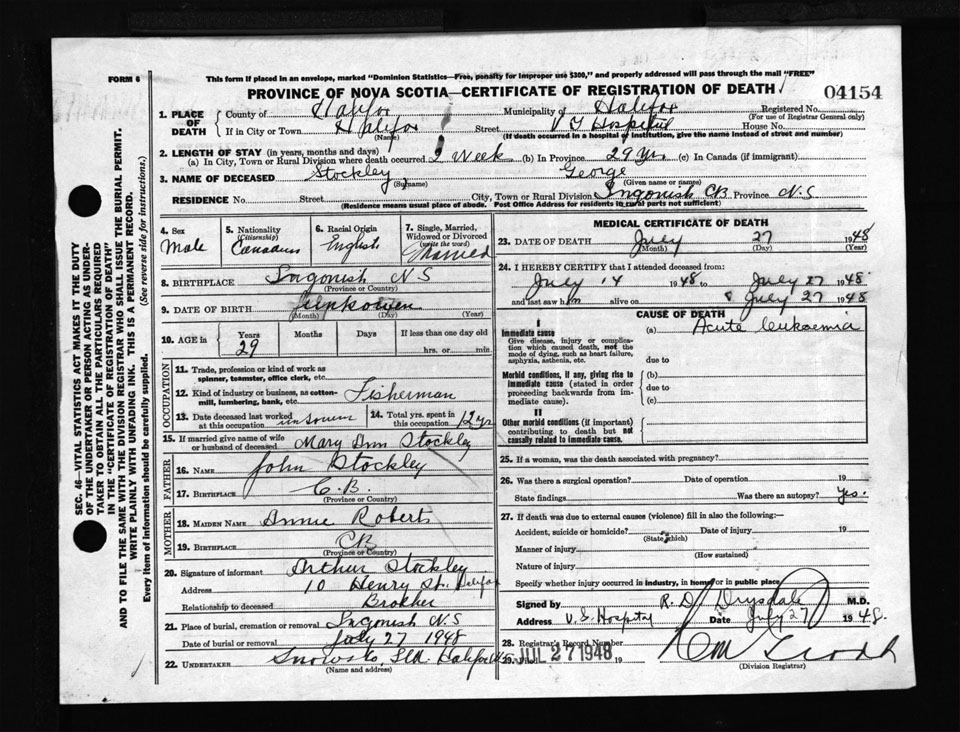 FORM 6
This form if placed in an envelope, marked "Dominion Statistics—Free, penalty for improper use $300," and properly addressed will pass through the mail "FREE"
PROVINCE OF NOVA SCOTIA—CERTIFICATE OF REGISTRATION OF DEATH
04154
SEC. 46—VITAL STATISTICS ACT MAKES IT THE DUTY
OF THE UNDERTAKER OR PERSON ACTING AS UNDER-
TAKER TO OBTAIN ALL THE PARTICULARS REQUIRED
IN THE "CERTIFICATE OF REGISTRATION OF DEATH"
AND TO FILE THE SAME WITH THE DIVISION REGISTRAR WHO SHALL ISSUE THE BURIAL PERMIT.
WRITE PLAINLY WITH UNFADING INK. THIS IS A PERMANENT RECORD.
Every item of information should be carefully supplied. (See reverse side for instructions.)
1. PLACE OF DEATH
County of Halifax Municipality of Halifax Registered No.
(For use of Registrar General only)
If in City or Town Halifax Street V G Hospital House No.
(Name) (If death occurred in a hospital or institution, give the name instead of street and number)
2. LENGTH OF STAY (in years, months and days)
(a) In City, Town or Rural Division where death occurred 2 Week (b) In Province 29 Yrs (c) In Canada (if immigrant)
3. NAME OF DECEASED Stockley George
(Surname) (Given name or names)
RESIDENCE No. Street City, Town or Rural Division Ingonish CB Province N.S
(Residence means usual place of abode. Post Office Address for residents in rural parts not sufficient)
4. Sex
Male
5. Nationality
(Citizenship)
Canadian
6. Racial Origin
English
7. Single, Married,
Widowed or Divorced
(write the word)
Married
8. BIRTHPLACE Ingonish N S
(Province or Country)
9. DATE OF BIRTH
(Month) (Day) (Year)
10. AGE in Years Months Days If less than one day old
29 hrs. or min.
OCCUPATION
11. Trade, profession or kind of work as
spinner, teamster, office clerk, etc.
12. Kind of industry or business, as cotton-
mill, lumbering, bank, etc. Fisherman
13. Date deceased last worked
at this occupation
14. Total yrs. spent in
this occupation 12 yrs
15. If married give name of wife
or husband of deceased Mary Ann Stockley
FATHER
16. NAME John Stockley
17. BIRTHPLACE C.B.
(Province or Country)
MOTHER
18. MAIDEN NAME Annie Roberts
19. BIRTHPLACE CB
(Province or Country)
20. Signature of informant Arthur Stockley
Address 10 Henry St. Halifax
Relationship to deceased Brother
21. Place of burial, cremation or removal Ingonish N.S
Date of burial or removal July 27 1948
22. UNDERTAKER Snows Co, Ltd. Halifax N.S
MEDICAL CERTIFICATE OF DEATH
23. DATE OF DEATH July 27 1948
(Month) (Day) (Year)
24. I HEREBY CERTIFY that I attended deceased from:
July 14 1948 to July 27 1948
and last saw him alive on July 27 1948
CAUSE OF DEATH
I
Immediate cause (a) Acute leukaemia
Give disease, injury or compli-
cation which caused death, not the
mode of dying, such as heart failure,
asphyxia, asthenia, etc. due to
Morbid conditions, if any, giving rise to (b)
immediate cause (stated in order due to
proceeding backwards from im-
mediate cause). (c)
II
Other morbid conditions (if important)
contributing to death but not
causally related to immediate cause.
25. If a woman, was the death associated with pregnancy?
26. Was there a surgical operation? Date of operation 19
State findings Was there an autopsy? Yes.
27. If death was due to external causes (violence) fill in also the following:—
Accident, suicide or homicide? Date of injury 19
(State which)
Manner of injury
(How sustained)
Nature of injury
Specify whether injury occurred in industry, in home or in public place
Signed by R. D. Drysdale M.D.
Address V.G. Hospital Date July 27 1948.
28. Registrar's Record Number
29. Filed JUL 27 1948 19
(Division Registrar)